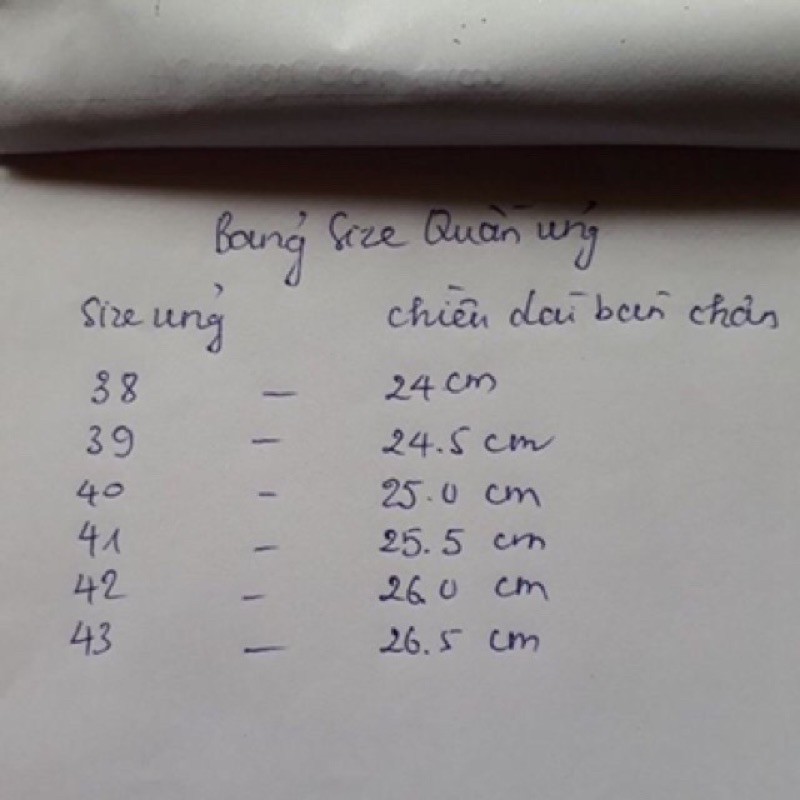 Bảng Size Quần ủng
Size ủng chiều dài bàn chân
38 – 24 cm
39 – 24.5 cm
40 – 25.0 cm
41 – 25.5 cm
42 – 26.0 cm
43 – 26.5 cm